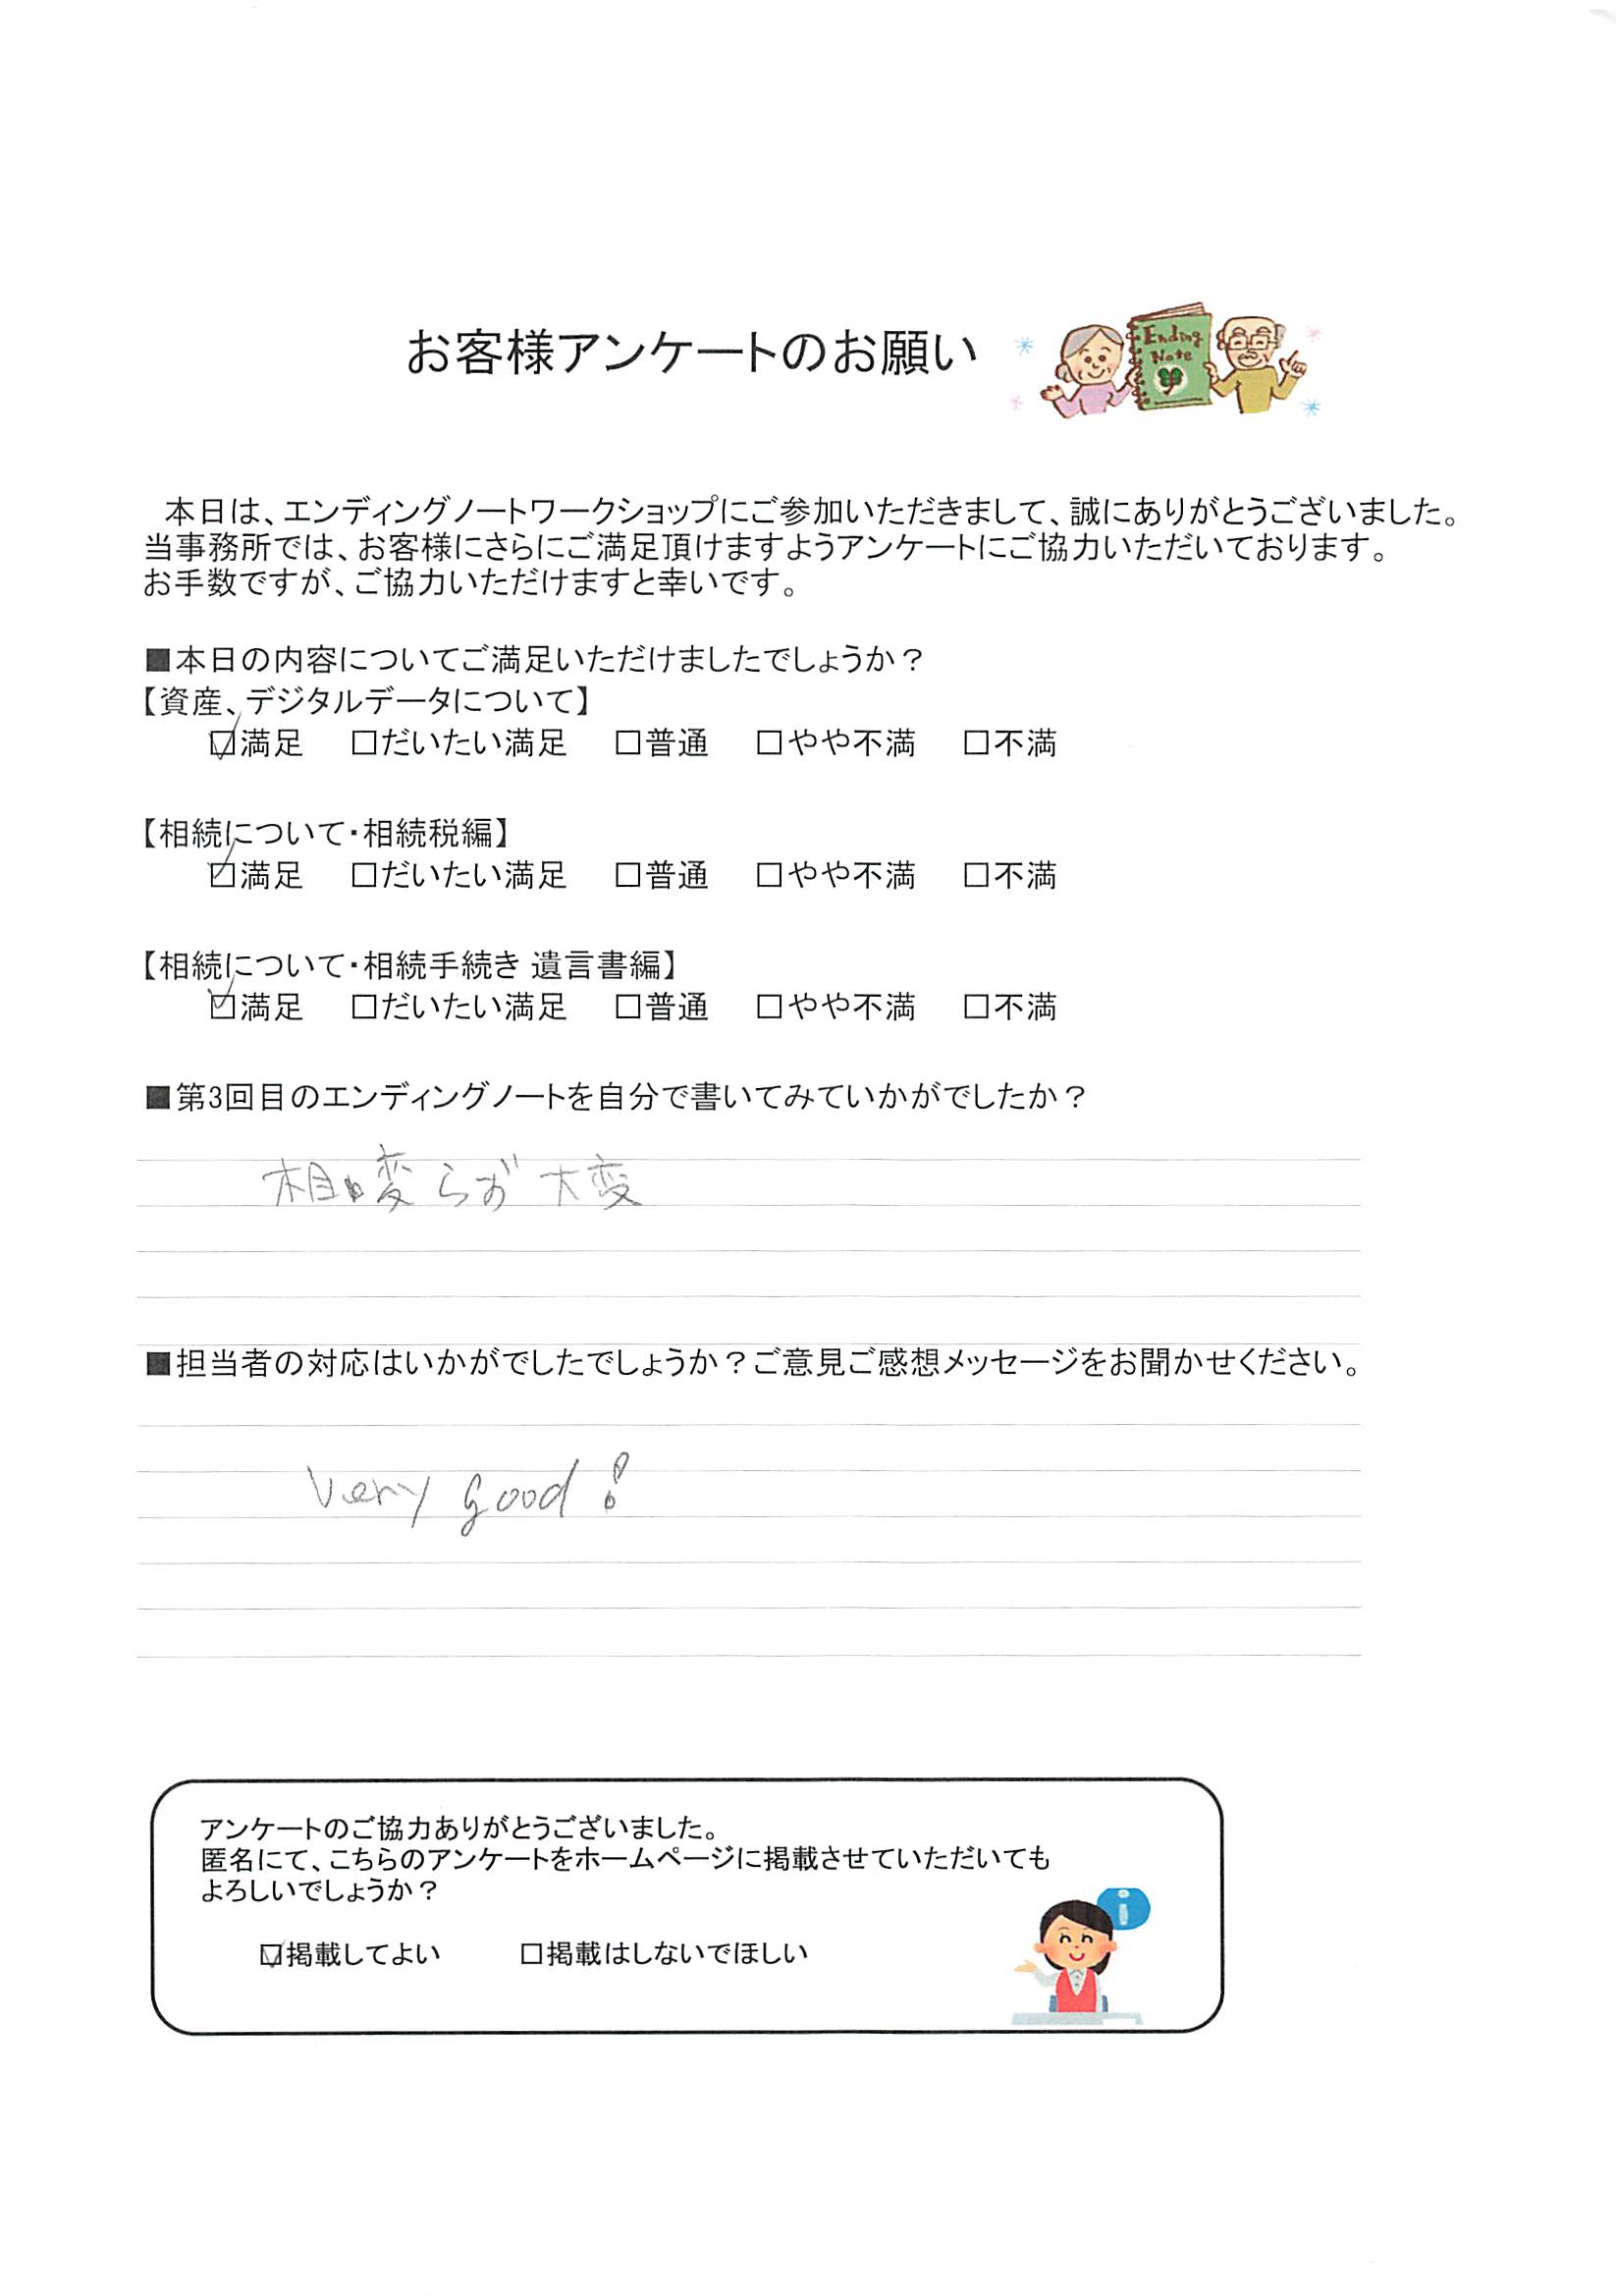 お客様アンケートのお願い
Ending
Note
本日は、エンディングノートワークショップにご参加いただきまして、誠にありがとうございました。
当事務所では、お客様にさらにご満足頂けますようアンケートにご協力いただいております。
お手数ですが、ご協力いただけますと幸いです。
■本日の内容についてご満足いただけましたでしょうか？
【資産、デジタルデータについて】
☑満足 □だいたい満足 □普通 □やや不満 □不満
【相続について・相続税編】
☑満足 □だいたい満足 □普通 □やや不満 □不満
【相続について・相続手続き 遺言書編】
☑満足 □だいたい満足 □普通 □やや不満 □不満
■第3回目のエンディングノートを自分で書いてみていかがでしたか？
相変らず 大変
■担当者の対応はいかがでしたでしょうか？ご意見ご感想メッセージをお聞かせください。
Very good!
アンケートのご協力ありがとうございました。
匿名にて、こちらのアンケートをホームページに掲載させていただいても
よろしいでしょうか？
i
☑掲載してよい □掲載はしないでほしい